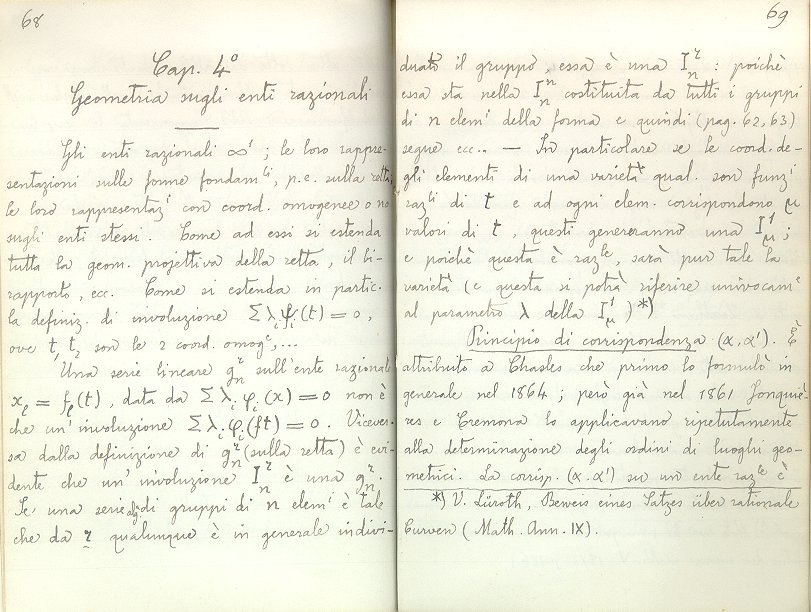 68
Cap. 4º
Geometria sugli enti razionali
Gli enti razionali ∞¹; le loro rappre-
sentazioni sulle forme fondam^li, p.e. sulla retta,
le loro rappresentaz^i con coord. omogenee o no
sugli enti stessi. Come ad essi si estenda
tutta la geom. projettiva della retta, il bi-
rapporto, ecc. Come si estenda in partic.
la definiz. di involuzione Σλᵢψᵢ(t) = 0,
ove t₁ t₂ son le 2 coord. omog^e, ...
Una serie lineare g_n^r sull'ente razionale
x_l = f_l(t), data da Σλᵢφᵢ(x) = 0 non è
che un'involuzione Σλᵢφᵢ(ft) = 0. Vicever-
sa dalla definizione di g_n^r (sulla retta) è evi-
dente che un'involuzione I_n^r è una g_n^r.
Se una serie alg. di gruppi di n elem^i è tale
che da r qualunque è in generale indivi-
69
duato il gruppo, essa è una I_n^r : poichè
essa sta nella I_n^n costituita da tutti i gruppi
di n elem^i della forma e quindi (pag. 62, 63)
segue ecc.. — In particolare se le coord. de-
gli elementi di una varietà qual. son funz^i
raz^li di t e ad ogni elem. corrispondono μ
valori di t, questi genereranno una I_μ^1;
e poichè questa è raz^le, sarà pur tale la
varietà (e questa si potrà riferire univocam^e
al parametro λ della I_μ^1) *)
Principio di corrispondenza (α, α'). È
attribuito a Chasles che primo lo formulò in
generale nel 1864; però già nel 1861 Jonquiè-
res e Cremona lo applicavano ripetutamente
alla determinazione degli ordini di luoghi geo-
metrici. La corrisp. (α.α') su un ente raz^le è
*) V. Lüroth, Beweis eines Satzes über rationale
Curven (Math. Ann. IX).